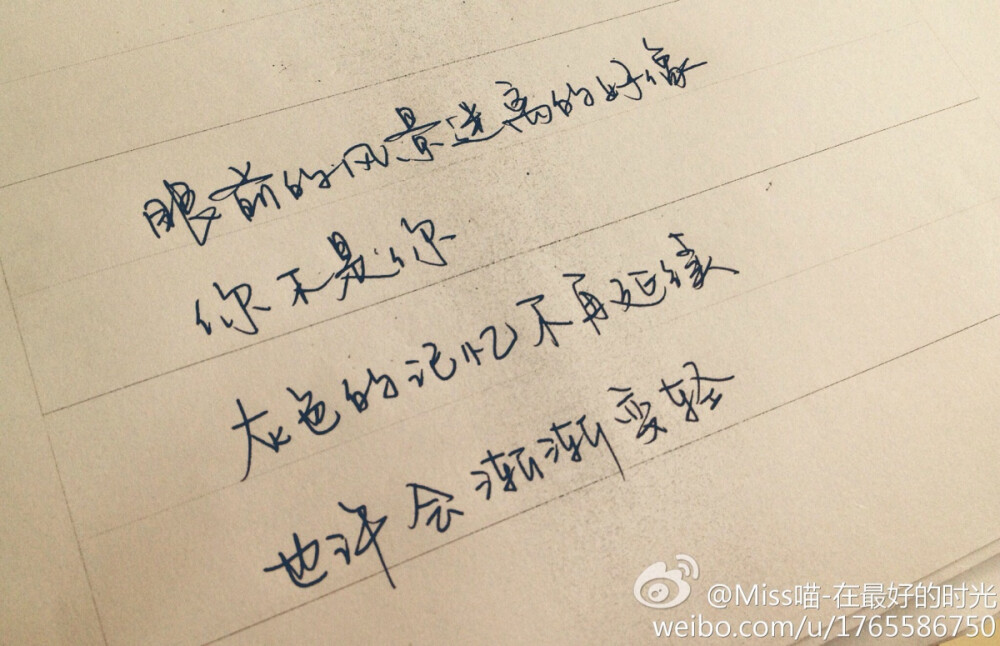 眼前的风景迷离的好像
你不是你
灰色的记忆不再延续
也许会渐渐变轻
@Miss喵-在最好的时光
weibo.com/u/1765586750